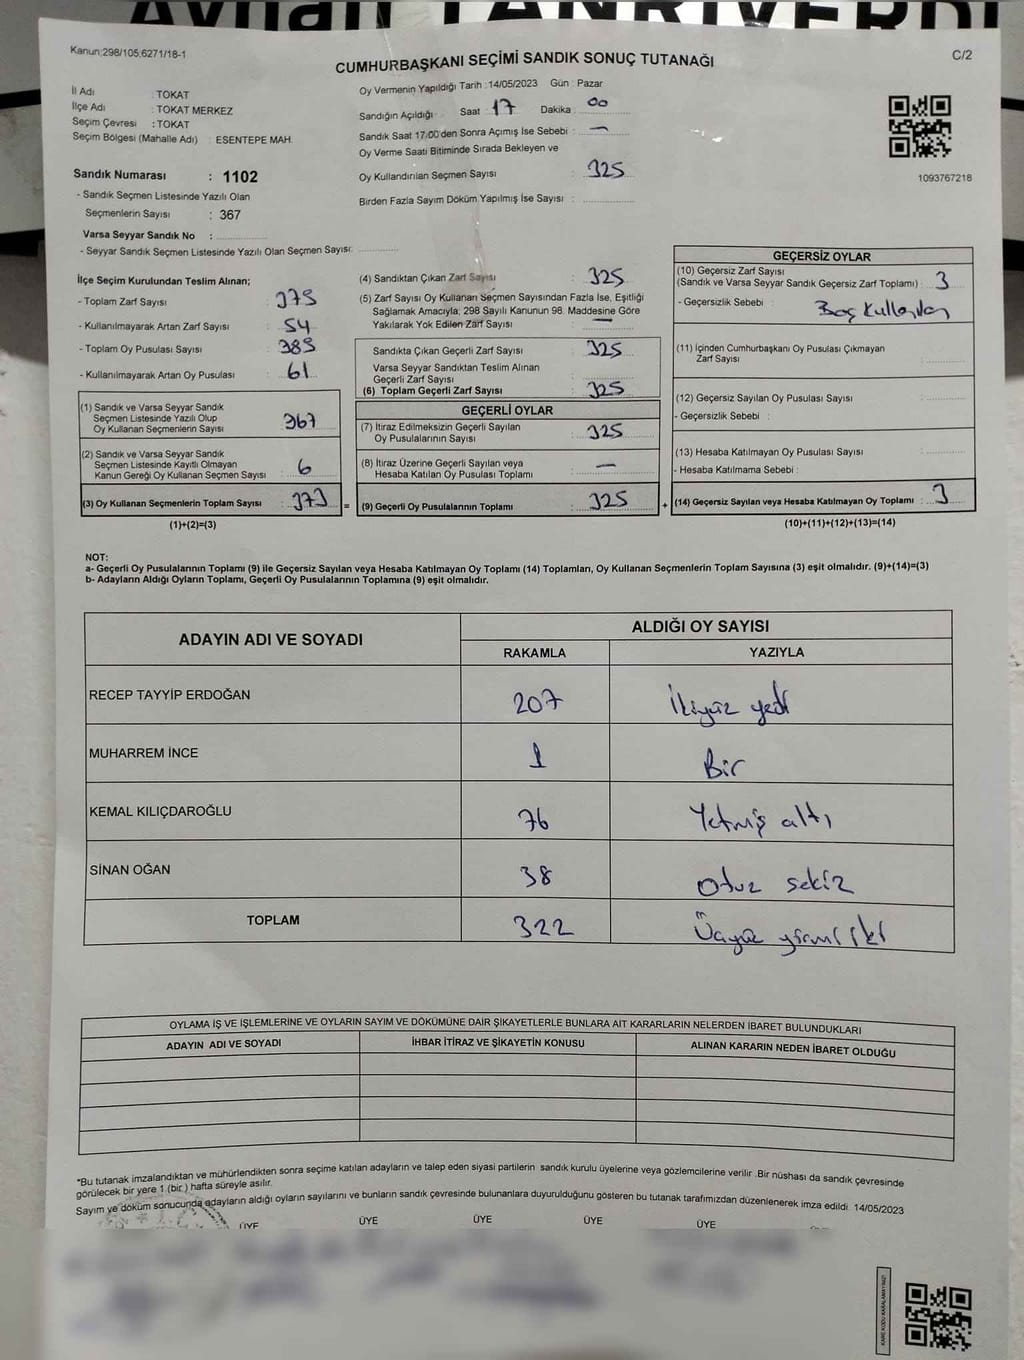 Ayhan TANRIVERDİ
Kanun;298/105;6271/18-1
CUMHURBAŞKANI SEÇİMİ SANDIK SONUÇ TUTANAĞI
C/2
İl Adı : TOKAT
İlçe Adı : TOKAT MERKEZ
Seçim Çevresi : TOKAT
Seçim Bölgesi (Mahalle Adı) : ESENTEPE MAH.
Sandık Numarası : 1102
- Sandık Seçmen Listesinde Yazılı Olan
Seçmenlerin Sayısı : 367
Varsa Seyyar Sandık No :
- Seyyar Sandık Seçmen Listesinde Yazılı Olan Seçmen Sayısı:
Oy Vermenin Yapıldığı Tarih :14/05/2023 Gün : Pazar
Sandığın Açıldığı Saat : 17 Dakika : 00
Sandık Saat 17:00'den Sonra Açımış İse Sebebi : —
Oy Verme Saati Bitiminde Sırada Bekleyen ve
Oy Kullandırılan Seçmen Sayısı : 325
Birden Fazla Sayım Döküm Yapılmış İse Sayısı :
1093767218
İlçe Seçim Kurulundan Teslim Alınan;
- Toplam Zarf Sayısı : 375
- Kullanılmayarak Artan Zarf Sayısı : 54
- Toplam Oy Pusulası Sayısı : 385
- Kullanılmayarak Artan Oy Pusulası : 61
(1) Sandık ve Varsa Seyyar Sandık
Seçmen Listesinde Yazılı Olup
Oy Kullanan Seçmenlerin Sayısı : 367
(2) Sandık ve Varsa Seyyar Sandık
Seçmen Listesinde Kayıtlı Olmayan
Kanun Gereği Oy Kullanan Seçmen Sayısı : 6
(3) Oy Kullanan Seçmenlerin Toplam Sayısı : 373 =
(1)+(2)=(3)
(4) Sandıktan Çıkan Zarf Sayısı : 325
(5) Zarf Sayısı Oy Kullanan Seçmen Sayısından Fazla İse, Eşitliği
Sağlamak Amacıyla; 298 Sayılı Kanunun 98. Maddesine Göre
Yakılarak Yok Edilen Zarf Sayısı : —
Sandıkta Çıkan Geçerli Zarf Sayısı : 325
Varsa Seyyar Sandıktan Teslim Alınan
Geçerli Zarf Sayısı :
(6) Toplam Geçerli Zarf Sayısı : 325
GEÇERLİ OYLAR
(7) İtiraz Edilmeksizin Geçerli Sayılan
Oy Pusulalarının Sayısı : 325
(8) İtiraz Üzerine Geçerli Sayılan veya
Hesaba Katılan Oy Pusulası Toplamı : —
(9) Geçerli Oy Pusulalarının Toplamı : 325 +
GEÇERSİZ OYLAR
(10) Geçersiz Zarf Sayısı
(Sandık ve Varsa Seyyar Sandık Geçersiz Zarf Toplamı) : 3
- Geçersizlik Sebebi : Boş Kullanılan
(11) İçinden Cumhurbaşkanı Oy Pusulası Çıkmayan
Zarf Sayısı :
(12) Geçersiz Sayılan Oy Pusulası Sayısı :
- Geçersizlik Sebebi :
(13) Hesaba Katılmayan Oy Pusulası Sayısı :
- Hesaba Katılmama Sebebi :
(14) Geçersiz Sayılan veya Hesaba Katılmayan Oy Toplamı : 3
(10)+(11)+(12)+(13)=(14)
NOT:
a- Geçerli Oy Pusulalarının Toplamı (9) ile Geçersiz Sayılan veya Hesaba Katılmayan Oy Toplamı (14) Toplamları, Oy Kullanan Seçmenlerin Toplam Sayısına (3) eşit olmalıdır. (9)+(14)=(3)
b- Adayların Aldığı Oyların Toplamı, Geçerli Oy Pusulalarının Toplamına (9) eşit olmalıdır.
ADAYIN ADI VE SOYADI
ALDIĞI OY SAYISI
RAKAMLA YAZIYLA
RECEP TAYYİP ERDOĞAN 207 İkiyüz yedi
MUHARREM İNCE 1 Bir
KEMAL KILIÇDAROĞLU 76 Yetmiş altı
SİNAN OĞAN 38 Otuz sekiz
TOPLAM 322 Üçyüz yirmi iki
OYLAMA İŞ VE İŞLEMLERİNE VE OYLARIN SAYIM VE DÖKÜMÜNE DAİR ŞİKAYETLERLE BUNLARA AİT KARARLARIN NELERDEN İBARET BULUNDUKLARI
ADAYIN ADI VE SOYADI İHBAR İTİRAZ VE ŞİKAYETİN KONUSU ALINAN KARARIN NEDEN İBARET OLDUĞU
*Bu tutanak imzalandıktan ve mühürlendikten sonra seçime katılan adayların ve talep eden siyasi partilerin sandık kurulu üyelerine veya gözlemcilerine verilir .Bir nüshası da sandık çevresinde
görülecek bir yere 1 (bir ) hafta süreyle asılır.
Sayım ve döküm sonucunda adayların aldığı oyların sayılarını ve bunların sandık çevresinde bulunanlara duyurulduğunu gösteren bu tutanak tarafımızdan düzenlenerek imza edildi. 14/05/2023
ÜYE ÜYE ÜYE ÜYE ÜYE
KARE KODU KARALAMAYINIZ!